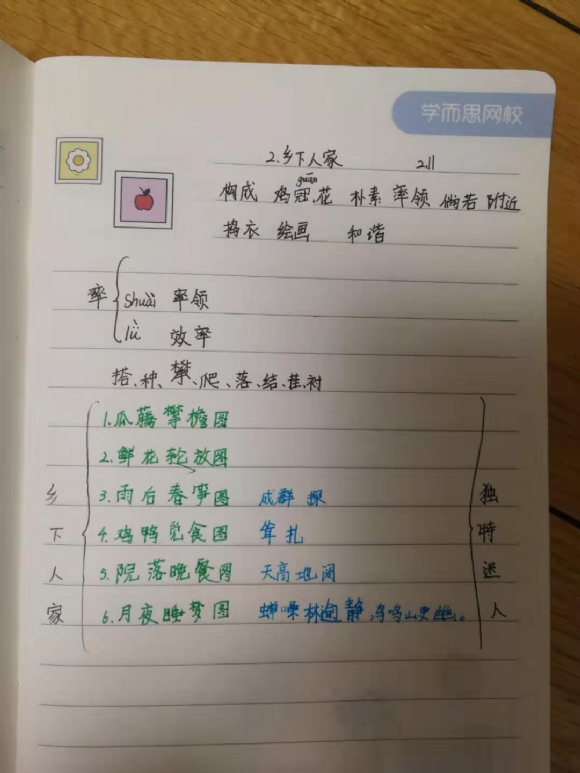 学而思网校
2.乡下人家 2.11
guān
构成 鸡冠花 朴素 率领 倘若 附近
捣衣 绘画 和谐
率
shuài 率领
lǜ 效率
搭、种、攀、爬、落、结、挂、衬
乡下人家
1.瓜藤攀檐图
2.鲜花轮放图
3.雨后春笋图 成群 探
4.鸡鸭觅食图 耸 扎
5.院落晚餐图 天高地阔
6.月夜睡梦图 蝉噪林逾静,鸟鸣山更幽。
独特迷人